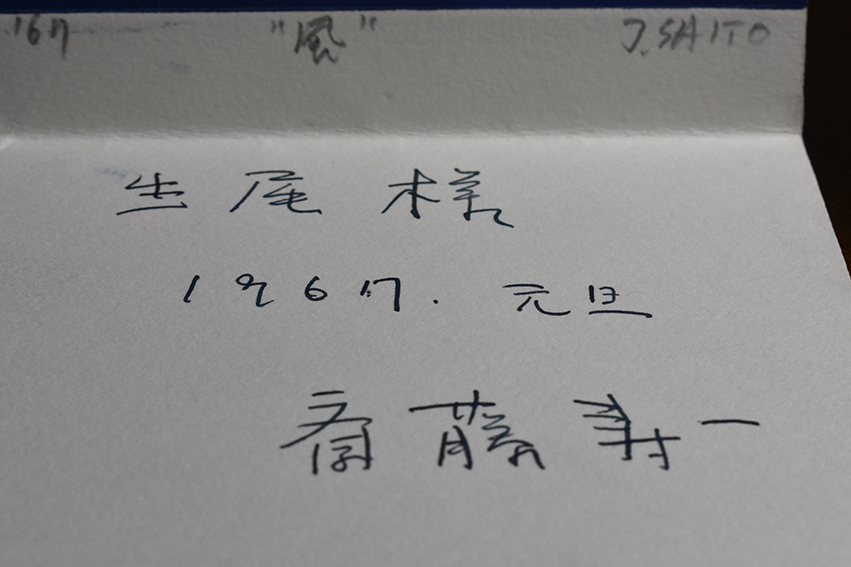 '67 "風" J.SAITO
生尾様
1967. 元旦
斉藤寿一